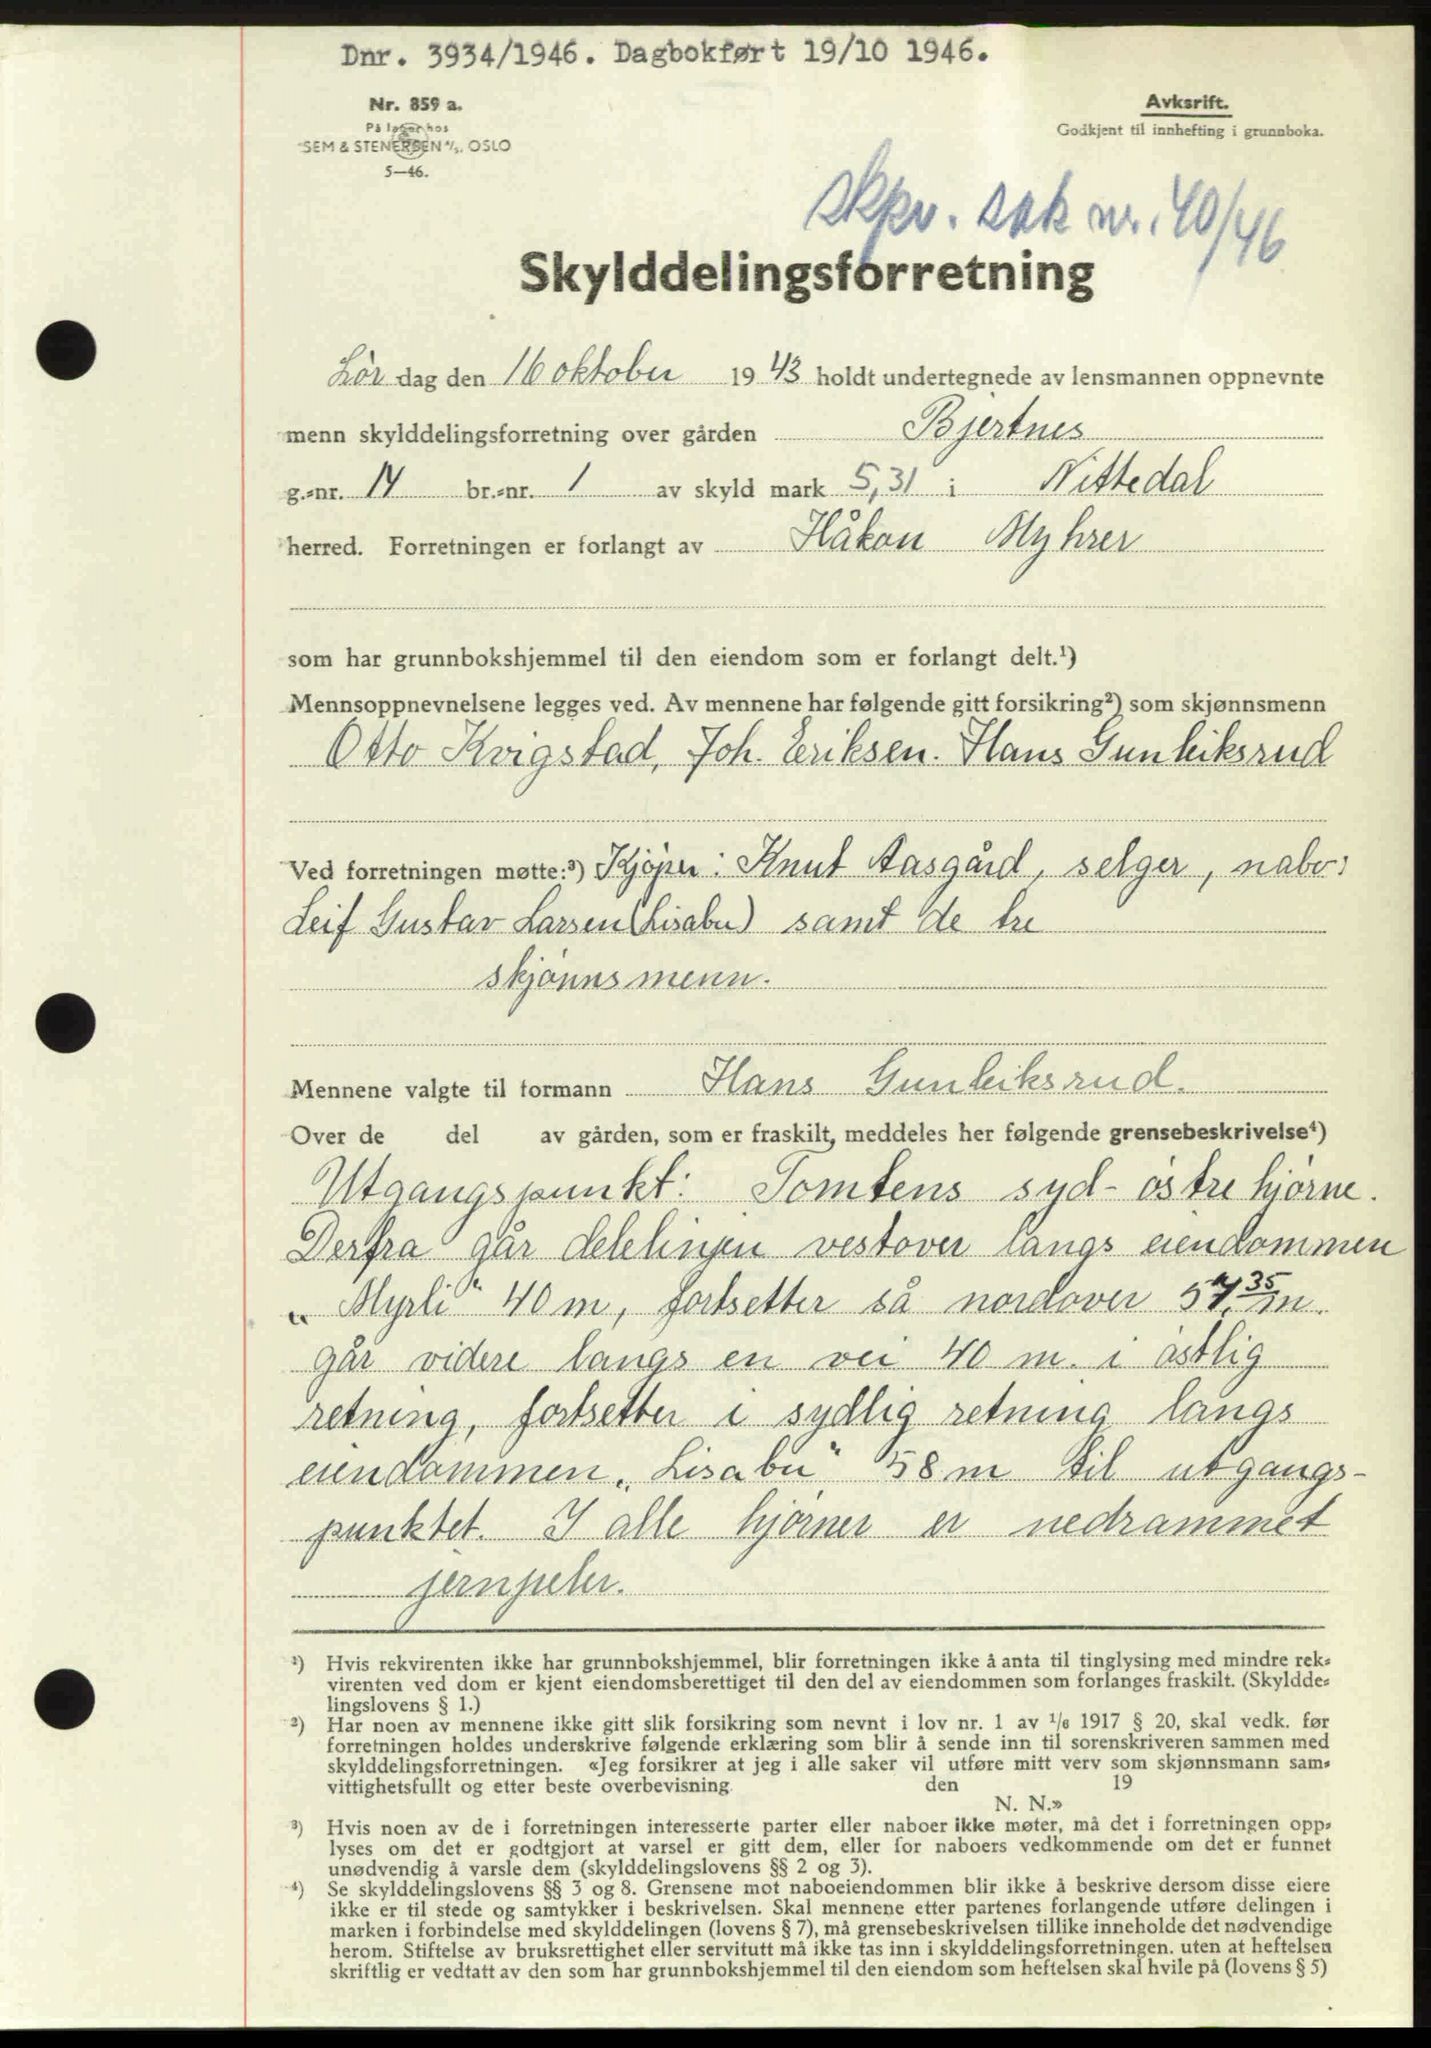 Dnr. 3934/1946. Dagbokført 19/10 1946.
Nr. 859 a.
På lager hos
SEM & STENERSEN A/S, OSLO
5—46.
Avksrift.
Godkjent til innhefting i grunnboka.
skpv. sak nr. 40/46
Skylddelingsforretning
Lør dag den 16 oktober 1943 holdt undertegnede av lensmannen oppnevnte
menn skylddelingsforretning over gården Bjertnes
g.-nr. 14 br.-nr. 1 av skyld mark 5,31 i Nittedal
herred. Forretningen er forlangt av Håkon Myhrer
som har grunnbokshjemmel til den eiendom som er forlangt delt.¹)
Mennsoppnevnelsene legges ved. Av mennene har følgende gitt forsikring²) som skjønnsmenn
Otto Kvigstad, Joh. Eriksen. Hans Gunleiksrud
Ved forretningen møtte:³) Kjøper: Knut Aasgård, selger, nabo:
Leif Gustav Larsen (Lisabu) samt de tre
skjønnsmenn.
Mennene valgte til formann Hans Gunleiksrud.
Over de del av gården, som er fraskilt, meddeles her følgende grensebeskrivelse⁴)
Utgangspunkt: Tomtens syd-østre hjørne.
Derfra går delelinjen vestover langs eiendommen
„Myrli" 40 m, fortsetter så nordover 54,35 m.
går videre langs en vei 40 m. i østlig
retning, fortsetter i sydlig retning langs
eiendommen „Lisabu" 58 m til utgangs-
punktet. I alle hjørner er nedrammet
jernpeler.
¹) Hvis rekvirenten ikke har grunnbokshjemmel, blir forretningen ikke å anta til tinglysing med mindre rek-
virenten ved dom er kjent eiendomsberettiget til den del av eiendommen som forlanges fraskilt. (Skyldde-
lingslovens § 1.)
²) Har noen av mennene ikke gitt slik forsikring som nevnt i lov nr. 1 av 1/6 1917 § 20, skal vedk. før
forretningen holdes underskrive følgende erklæring som blir å sende inn til sorenskriveren sammen med
skylddelingsforretningen. «Jeg forsikrer at jeg i alle saker vil utføre mitt verv som skjønnsmann sam-
vittighetsfullt og etter beste overbevisning den 19
N. N.»
³) Hvis noen av de i forretningen interesserte parter eller naboer ikke møter, må det i forretningen opp-
lyses om det er godtgjort at varsel er gitt dem, eller for naboers vedkommende om det er funnet
unødvendig å varsle dem (skylddelingslovens §§ 2 og 3).
⁴) Se skylddelingslovens §§ 3 og 8. Grensene mot naboeiendommen blir ikke å beskrive dersom disse eiere
ikke er til stede og samtykker i beskrivelsen. Skal mennene etter partenes forlangende utføre delingen i
marken i forbindelse med skylddelingen (lovens § 7), må grensebeskrivelsen tillike inneholde det nødvendige
herom. Stiftelse av bruksrettighet eller servitutt må ikke tas inn i skylddelingsforretningen. uten at heftelsen
skriftlig er vedtatt av den som har grunnbokshjemmel til den eiendom som heftelsen skal hvile på (lovens § 5)